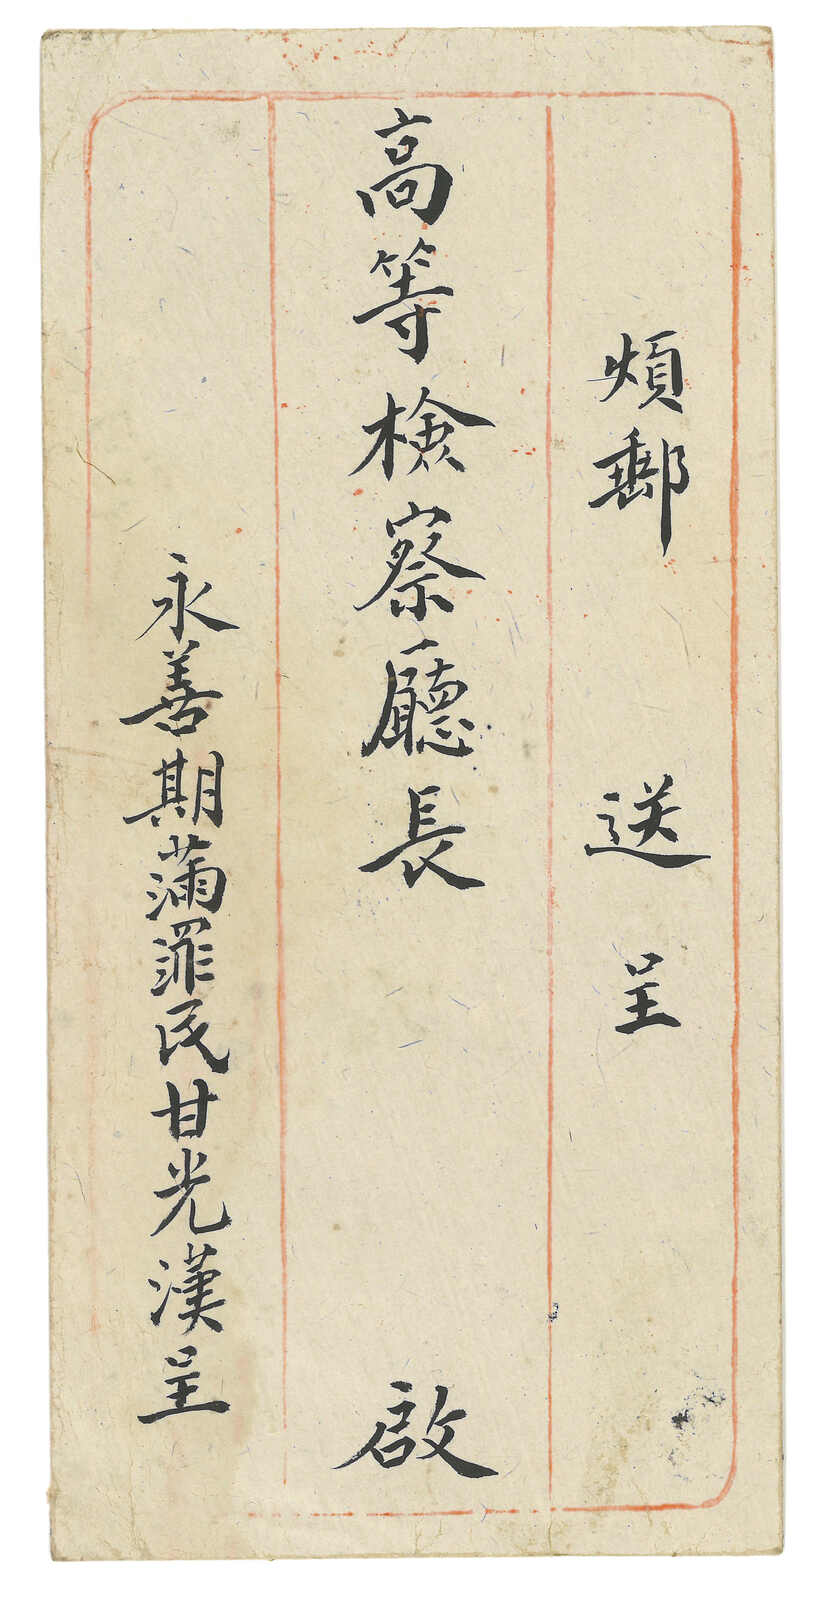 煩郵送呈
高等檢察廳長啟
永善期滿罪民甘光漢呈